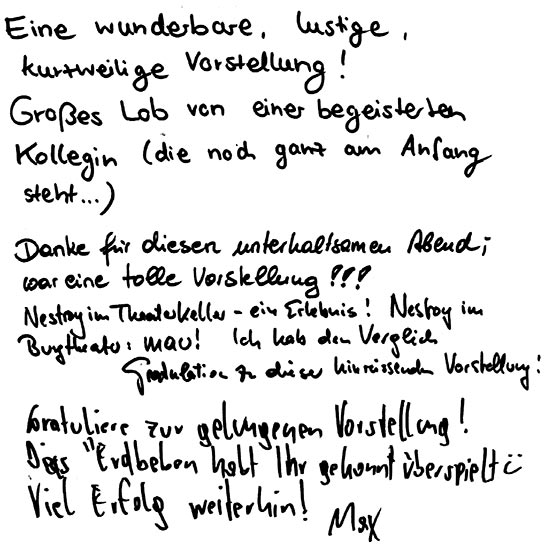 Eine wunderbare, lustige,
kurzweilige Vorstellung!
Großes Lob von einer begeisterten
Kollegin (die noch ganz am Anfang
steht...)
Danke für diesen unterhaltsamen Abend;
war eine tolle Vorstellung!!!
Nestroy im Theaterkeller - ein Erlebnis! Nestroy im
Burgtheater: mau! Ich hab den Verglich
Gratulation zu dieser hinreissenden Vorstellung!
Gratuliere zur gelungenen Vorstellung!
Dies "Erdbeben habt Ihr gekonnt überspielt ü
Viel Erfolg weiterhin!
Max